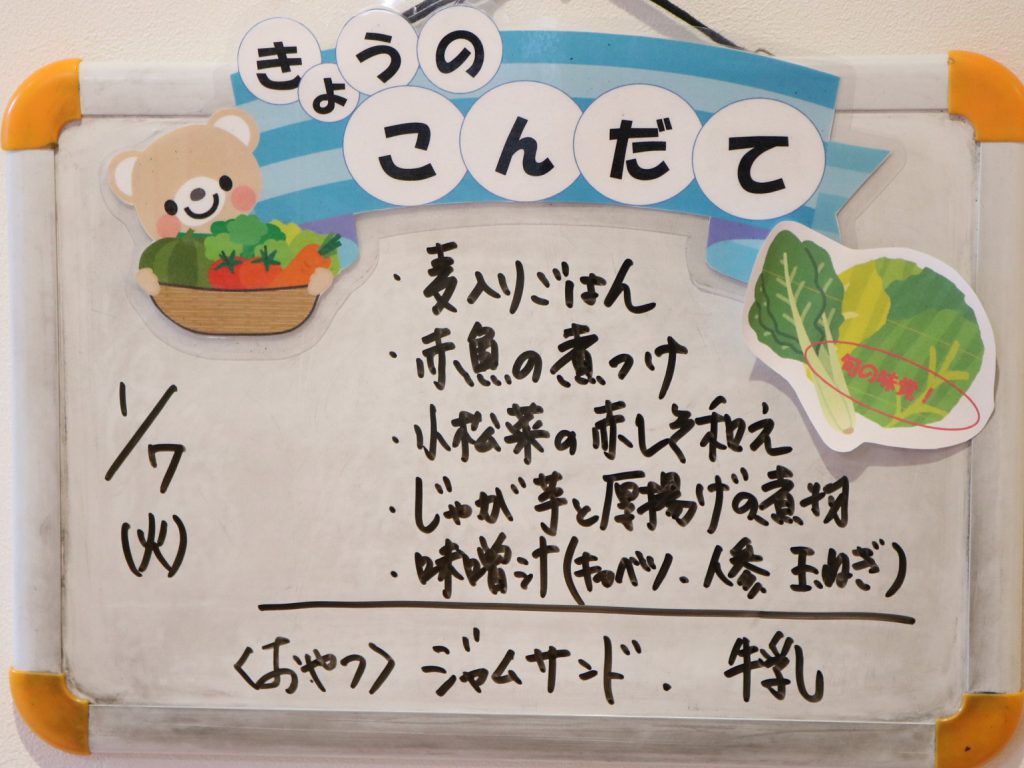 きょうの
こんだて
旬の味覚!
1/7
(火)
・麦入りごはん
・赤魚の煮つけ
・小松菜の赤しそ和え
・じゃが芋と厚揚げの煮物
・味噌汁(キャベツ.人参 玉ねぎ)
<おやつ> ジャムサンド. 牛乳